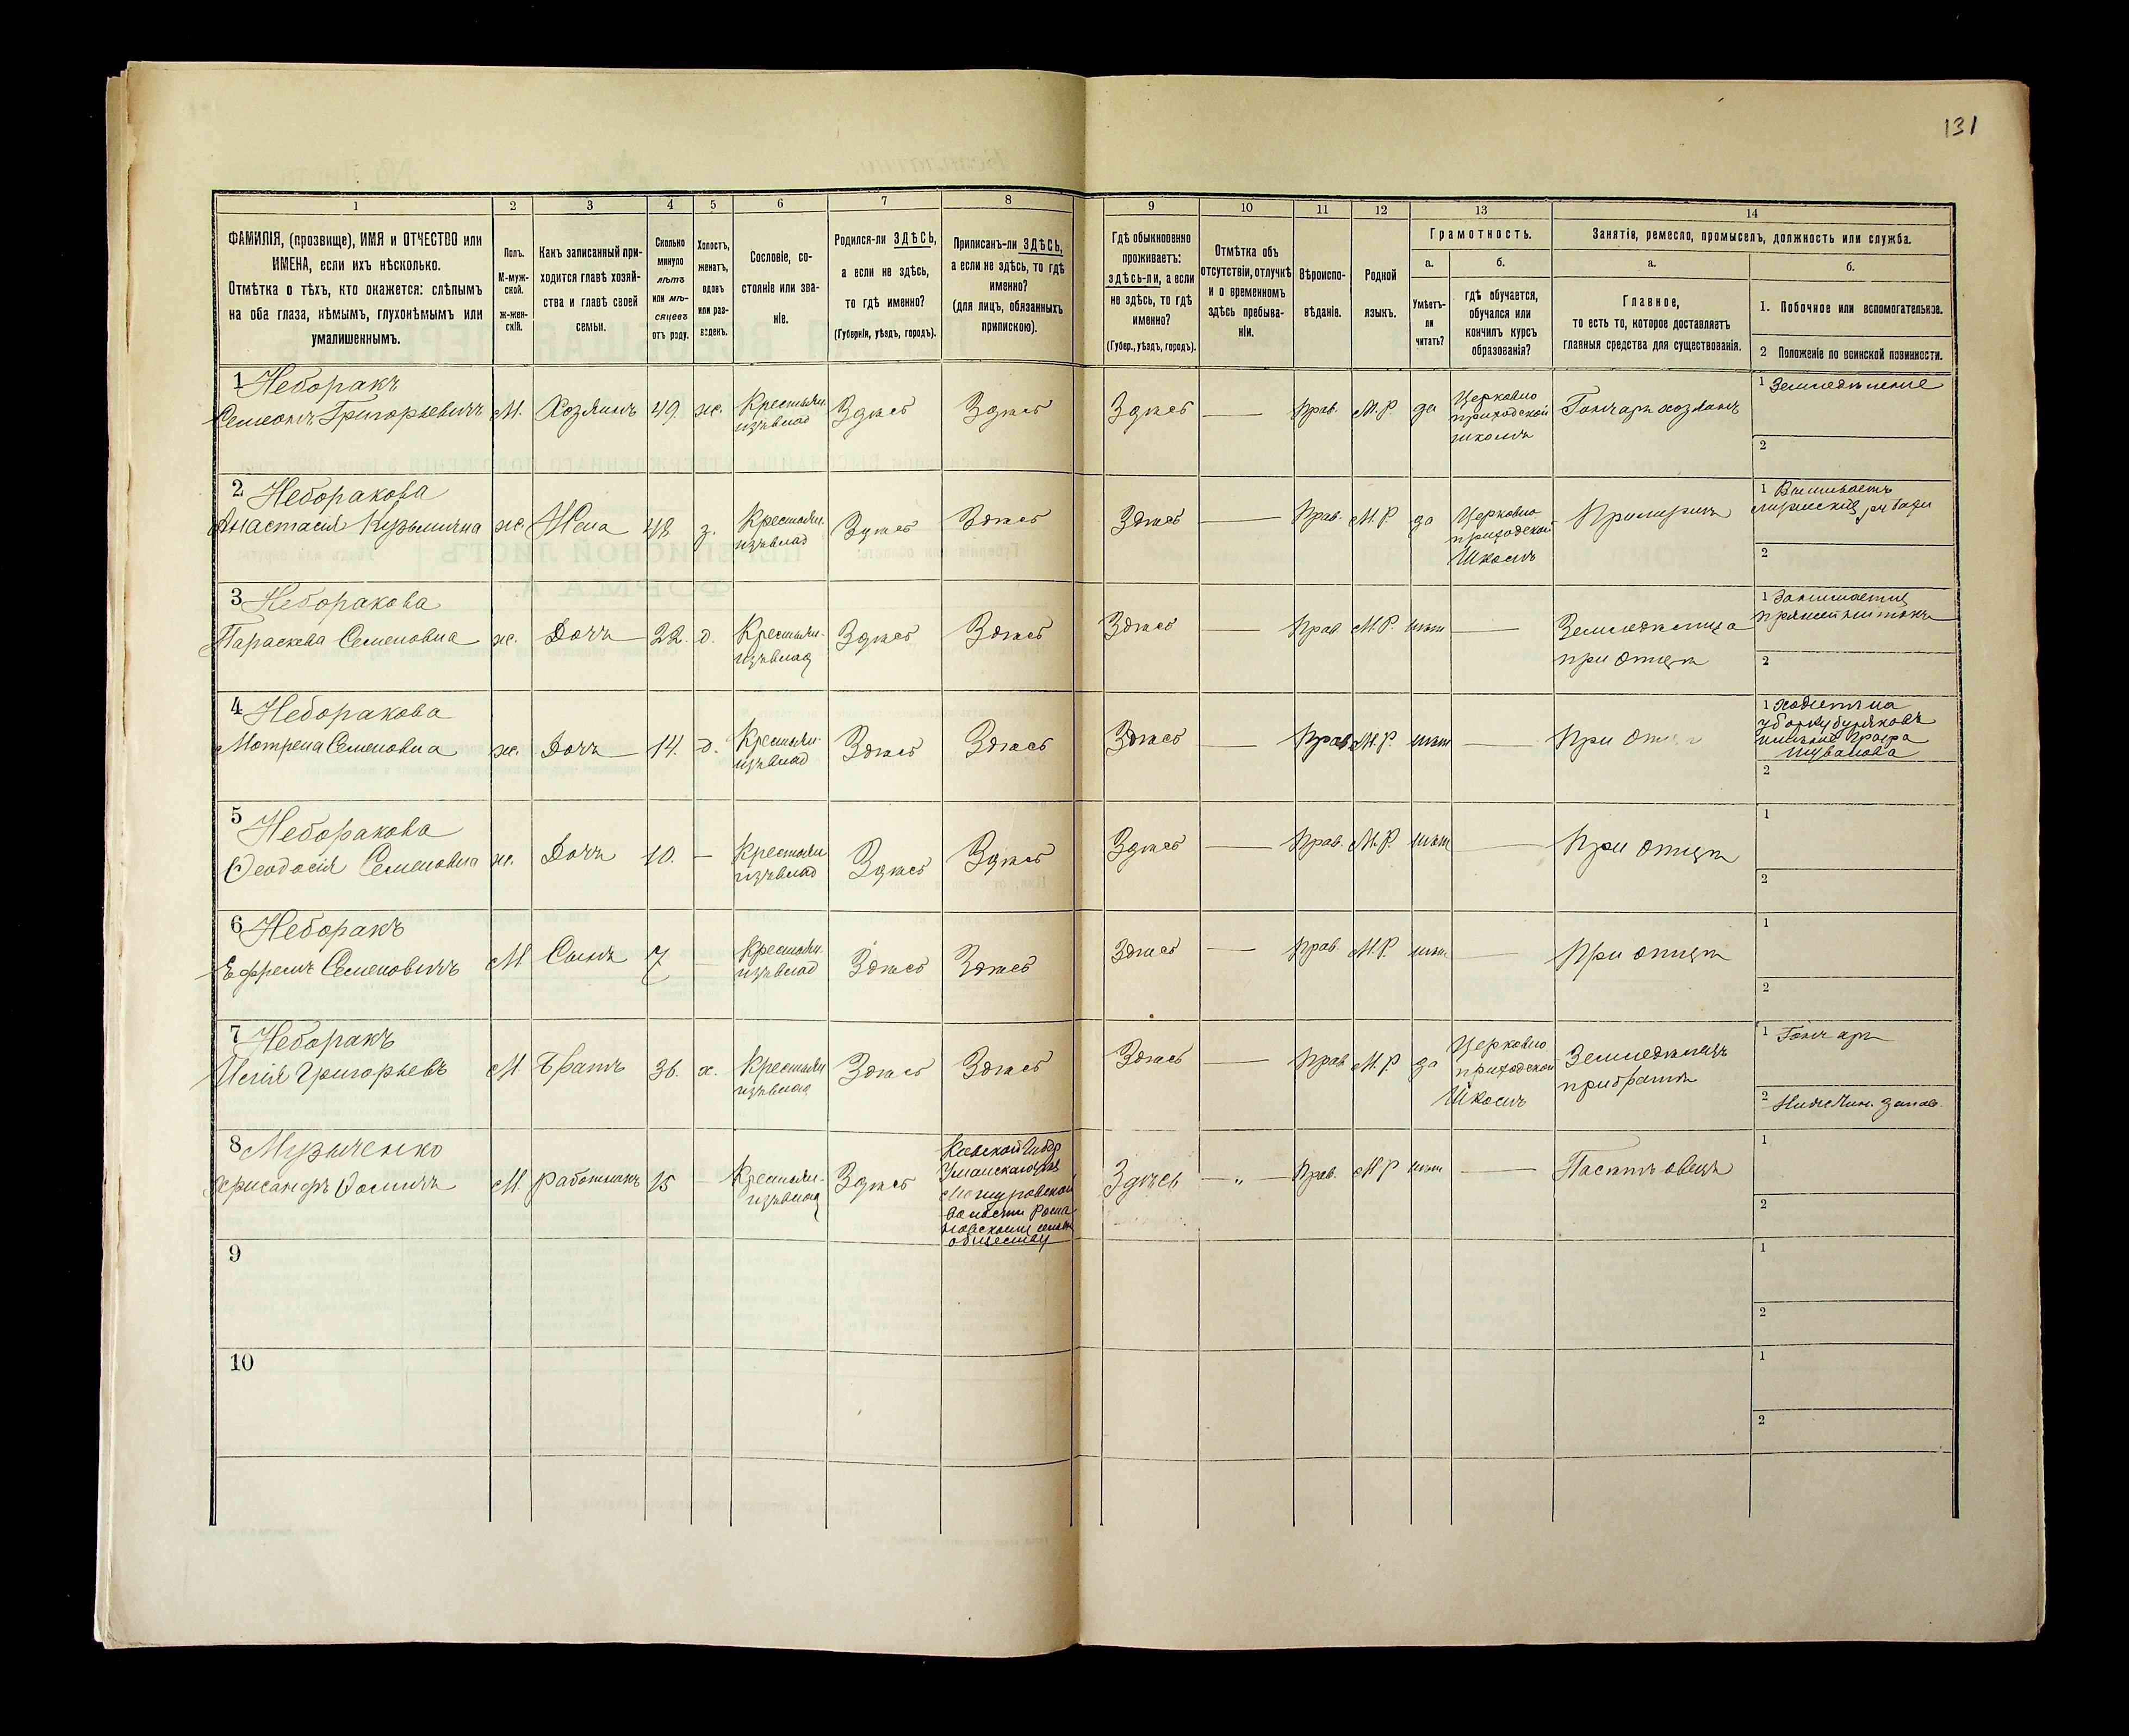 131
1
2
3
4
5
6
7
8
9
10
11
12
13
14
ФАМИЛІЯ, (прозвище), ИМЯ и ОТЧЕСТВО или
ИМЕНА, если ихъ нѣсколько.
Отмѣтка о тѣхъ, кто окажется: слѣпымъ
на оба глаза, нѣмымъ, глухонѣмымъ или
умалишеннымъ.
Полъ.
М-муж-
ской.
ж-жен-
скій.
Какъ записанный при-
ходится главѣ хозяй-
ства и главѣ своей
семьи.
Сколько
минуло
лѣтъ
или мѣ-
сяцевъ
отъ роду.
Холостъ,
женатъ,
вдовъ
или раз-
веденъ.
Сословіе, со-
стояніе или зва-
ніе.
Родился-ли ЗДѢСЬ,
а если не здѣсь,
то гдѣ именно?
(Губернія, уѣздъ, городъ).
Приписанъ-ли ЗДѢСЬ,
а если не здѣсь, то гдѣ
именно?
(для лицъ, обязанныхъ
припискою).
Гдѣ обыкновенно
проживаетъ:
здѣсь-ли, а если
не здѣсь, то гдѣ
именно?
(Губер., уѣздъ, городъ).
Отмѣтка объ
отсутствіи, отлучкѣ
и о временномъ
здѣсь пребыва-
ніи.
Вѣроиспо-
вѣданіе.
Родной
языкъ.
Грамотность.
а.
Умѣетъ-
ли
читать?
б.
гдѣ обучается,
обучался или
кончилъ курсъ
образованія?
Занятіе, ремесло, промыселъ, должность или служба.
а.
Главное,
то есть то, которое доставляетъ
главныя средства для существованія.
б.
1. Побочное или вспомогательное.
2 Положеніе по воинской повинности.
1 Неборакъ
Семеонъ Григорьевичъ
М.
Хозяинъ
49
ж.
Крестьян.
изъ влад
Здѣсь
Здѣсь
Здѣсь
—
Прав.
М.Р.
да
Церковно
приходской
школѣ
Гончаръ хозяинъ
1 Земледѣліе
2
2 Неборакова
Анастасія Кузьминична
ж.
Жена
48
з.
Крестьян.
изъ влад
Здѣсь
Здѣсь
Здѣсь
—
Прав.
М.Р.
да
Церковно
приходской
Школѣ
При мужѣ
1 Вышиваетъ
2
3 Неборакова
Параскева Семеновна
ж.
Дочь
22.
д.
Крестьян.
изъ влад
Здѣсь
Здѣсь
Здѣсь
—
Прав
М.Р.
нѣт
—
Земледѣлица
при Отцѣ
1 Занимается
2
4 Неборакова
Мотрена Семеновна
ж.
Дочь
14.
д.
Крестьян.
изъ влад
Здѣсь
Здѣсь
Здѣсь
—
Прав
М.Р.
нѣт
—
При Отцѣ
1 Ходитъ на
уборку буряковъ
имѣніе Графа
Шувалова
2
5 Неборакова
Феодосія Семеновна
ж.
Дочь
10.
—
Крестьян
изъ влад
Здѣсь
Здѣсь
Здѣсь
—
Прав.
М.Р.
нѣт
—
При Отцѣ
1
2
6 Неборакъ
Ефремъ Семеновичъ
М
Сынъ
7
—
Крестьян.
изъ влад
Здѣсь
Здѣсь
Здѣсь
—
Прав.
М.Р.
нѣт
—
При отцѣ
1
2
7 Неборакъ
Григорьевъ
М.
Братъ
36.
х.
Крестьян
изъ влад
Здѣсь
Здѣсь
Здѣсь
—
Прав
М.Р.
да
Церковно
приходской
Школѣ
Земледѣлецъ
при братѣ
1 Гончаръ
2 Ниж. Чин. Запас.
8 Музыченко
Хрисанфъ Фомичъ
М.
Работникъ
15
—
Крестьян.
изъ влад
Здѣсь
Уманскаго
волости
обществу
Здѣсь
— „ —
Прав.
М Р
нѣт
—
Пастъ овецъ
1
2
9
1
2
10
1
2